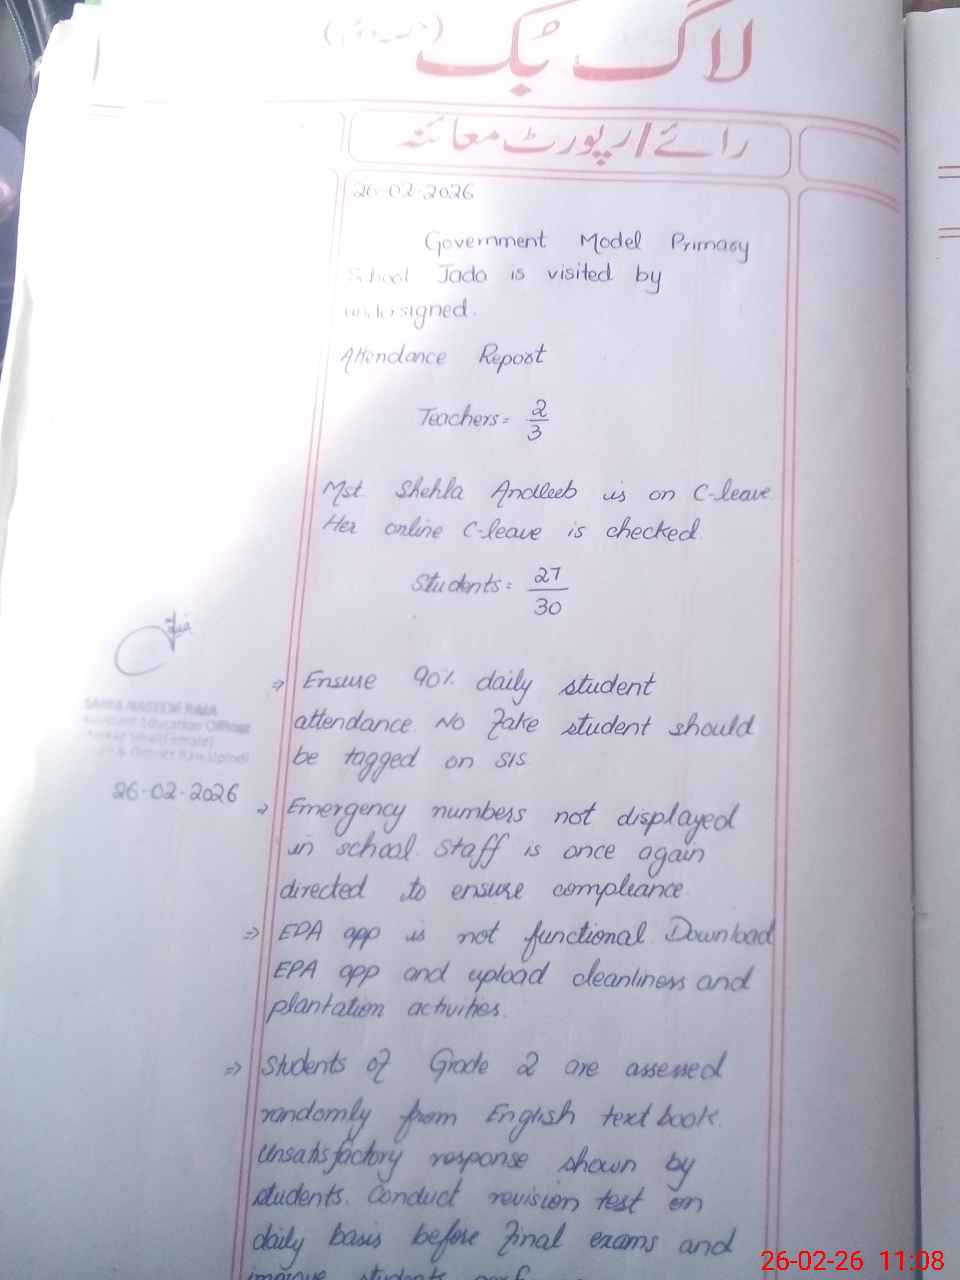 لاگ بُک
رائے/رپورٹ معائنہ
26-02-2026
Government Model Primary
School Jada is visited by
undersigned.
Attendance Report
Teachers = 2/3
Mst. Shehla Andleeb is on C-leave.
Her online C-leave is checked.
Students = 27/30
⇒ Ensure 90% daily student
attendance. No fake student should
be tagged on SIS
⇒ Emergency numbers not displayed
in school. Staff is once again
directed to ensure compliance.
⇒ EPA app is not functional. Download
EPA app and upload cleanliness and
plantation activities.
⇒ Students of Grade 2 are assessed
randomly from English text book.
Unsatisfactory response shown by
students. Conduct revision test on
daily basis before final exams and
improve students
Assistant Education Officer
26-02-2026
26-02-26 11:08